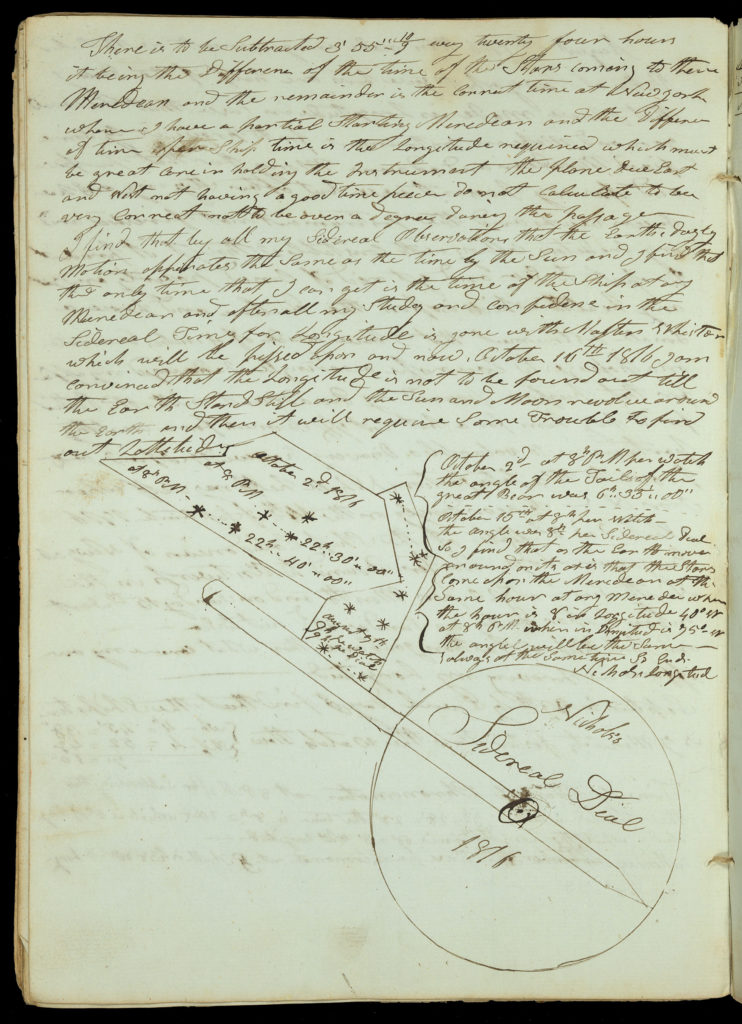 There is to be Subtracted 3' 55'' every twenty four hours
it being the Difference of the time of the Stars coming to there
Meredean and the remainder is the correct time at Newyork
where I have a partial Starting Meredean and the Differnce
of time Ship time is the Longitude required which must
be great care in holding the Instrument the plane due East
and West not having a good time piece do not Calculate to be
very correct not to be over a degree during the passage
I find that by all my Sidereal Observations that the Earths dayly
Motion opperates the Same as the time by the Sun and I find that
the only time that I can get is the time of the Ship at any
Meredean and after all my Study and confidence in the
Sidereal Time for Longitude is gone with Mathew Whiston
which will be pissed upon and now October 16th 1816 I am
convinced that the Longitude is not to be found out till
the Earth Stand Still and the Sun and Moon revolve around
the Earth and then it will require Some Trouble to find
out
October 2d 1816
at 8h PM
at 8h PM
22h - 30' = 00''
22h - 40' = 00''
August 9th
9h per watch
9h per Dial
October 2d at 8h PM per watch
the angle of the Tails of the
great Bear was 6h 35'' 00''
October 15th at 8h per watch
the angle was 8h per Sidereal Dial
So I find that as the Earth moves
around on its is that the Stars
come upon the Meredean at the
Same hour at any Meredean when
the hour is 8 in Longitude 40° W
at 8h PM when in Longitude is 75° W
the angle will be the Same
always at the Same time So Ends
Nichols Longitud
Nichols
Sidereal Dial
1816